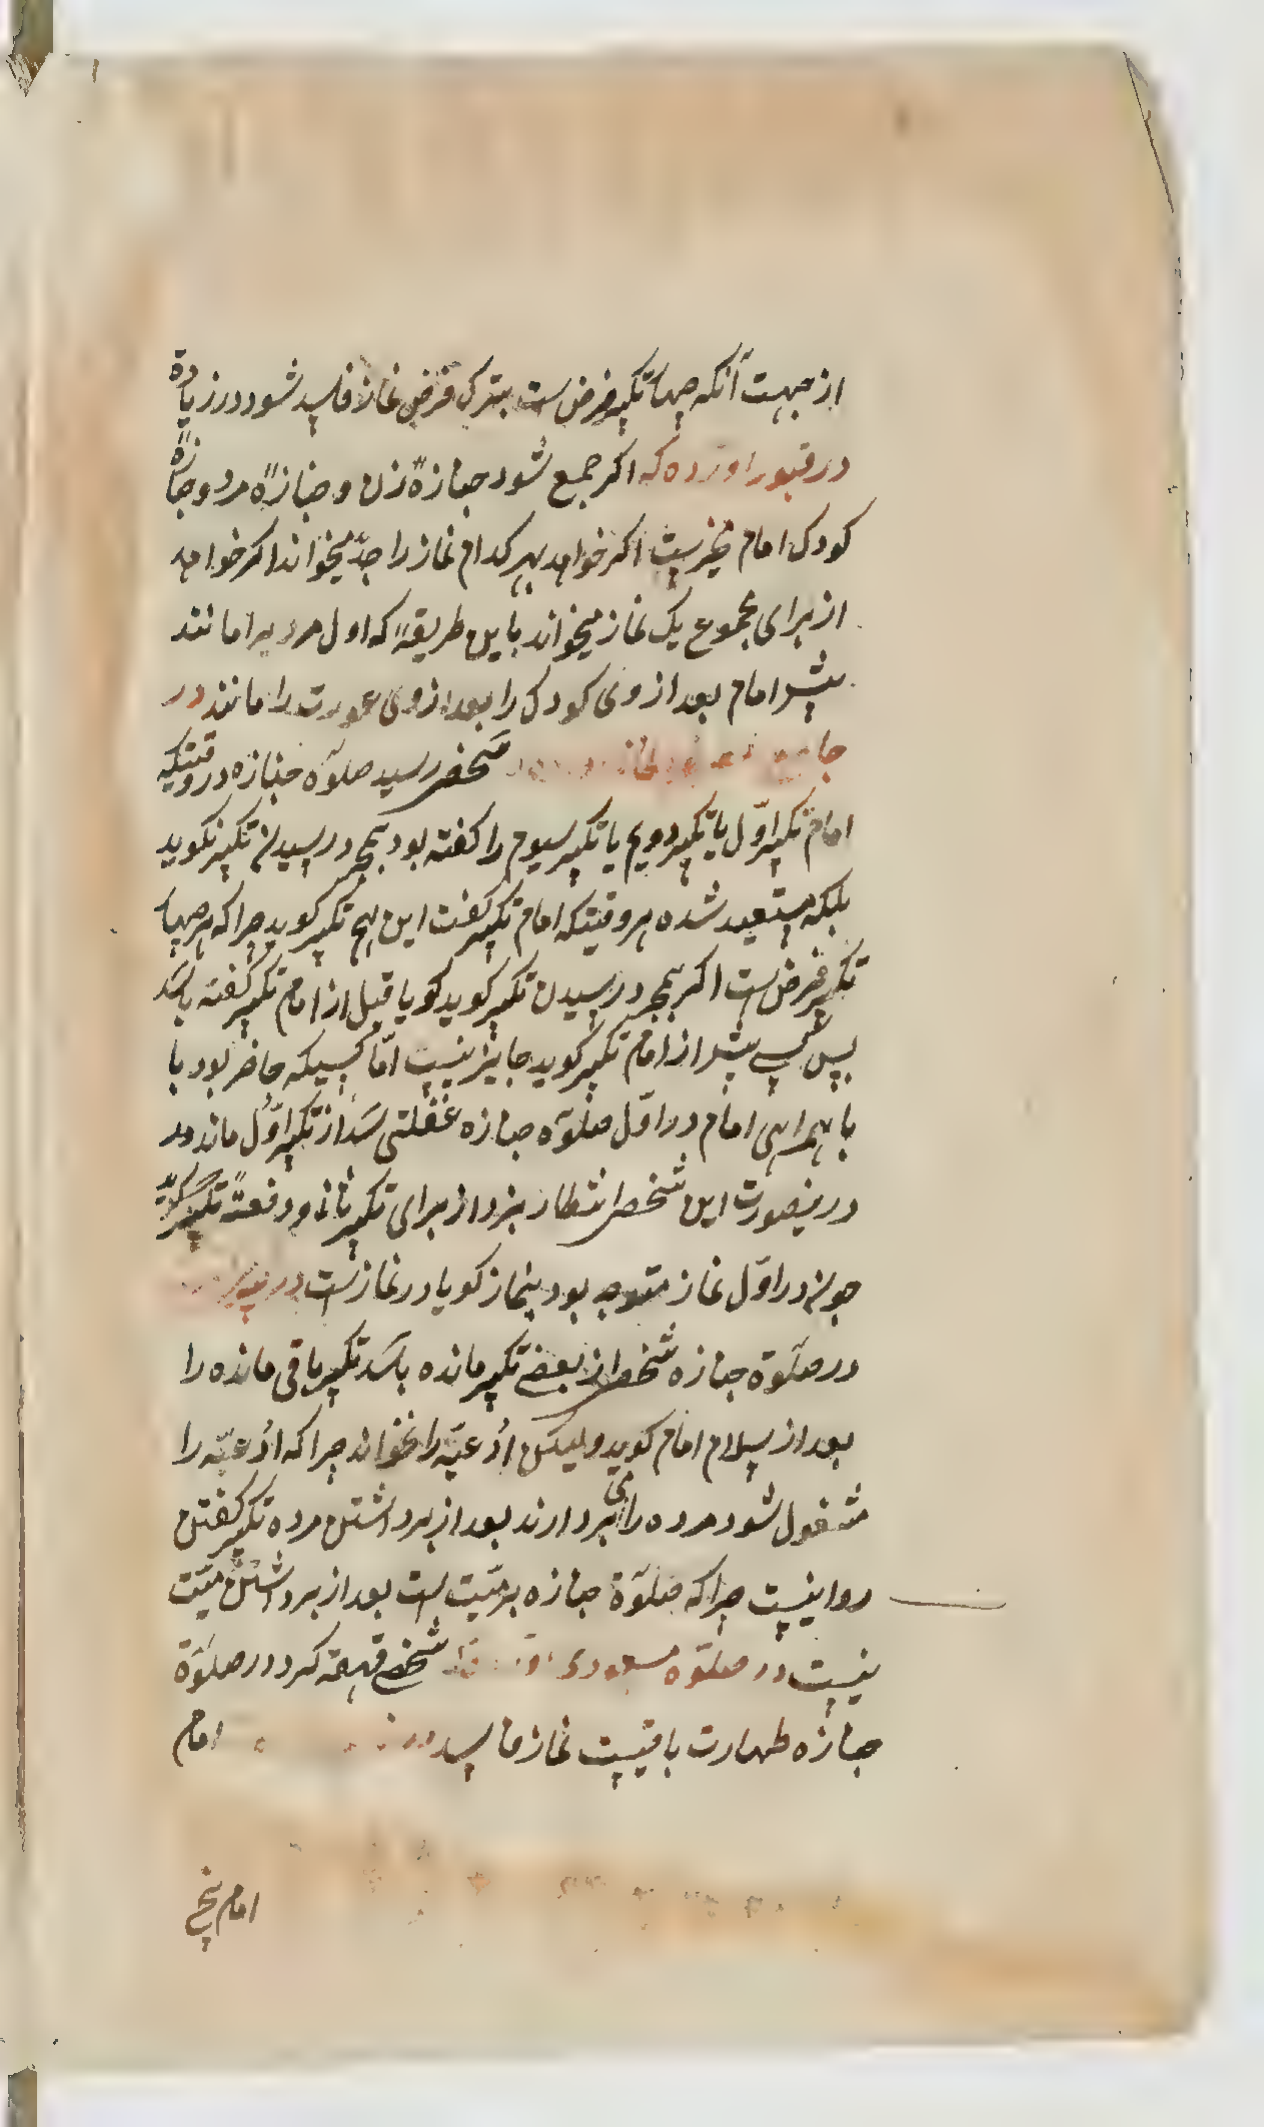 از جهت آنکه چهار تکبیر فرض است بترک فرض نماز فاسد شود در زیاده
در قبور اورده که اکر جمع شود جنازهٔ زن و جنازهٔ مرد و جنازهٔ
کودک امام مخیرست اکر خواهد بهر کدام نماز را جدّ میخواند اکر خواهد
از برای مجموع یک نماز میخواند باین طریقه که اول مرد را مانند
پیش امام بعد از وی کودک را بعد از وی عورت را مانند در
جامع شخص رسید صلوة جنازه در وقتیکه
امام تکبیر اوّل یا تکبیر دویم یا تکبیر سیوم را کفته بود بمجرد رسیدن تکبیر نکوید
بلکه مستعد شده هر وقتیکه امام تکبیر کفت این هم تکبیر کوید چرا که هر چهار
تکبیر فرض است اکر بمجرد رسیدن تکبیر کوید کویا قبل از امام تکبیر کفته باشد
پس کسی پیش از امام تکبیر کوید جایز نیست امّا کسیکه حاضر بود با
با همراهی امام در اوّل صلوة جنازه غفلتی شد از تکبیر اوّل ماند
درینصورت این شخص انتظار نبرد از برای تکبیر ثانی و دفعةً تکبیر کوید
چونه در اوّل نماز متوجه بود بنماز کویا در نماز است در
در صلوة جنازه شخص از بعضی تکبیر مانده باشد تکبیر باقی مانده را
بعد از سلام امام کوید ولیکن ادعیّه را نخواند چرا که ادعیّه را
مشغول شود مرده را می بردارند بعد از برداشتن مرده تکبیر کفتن
روا نیست چرا که صلوة جنازه بر میّت است بعد از برداشتن میّت
نیست در صلوة مسعودی شخصی قهقهه کرد در صلوة
جنازه طهارت باقیست نماز فاسد در امام
امام پنج